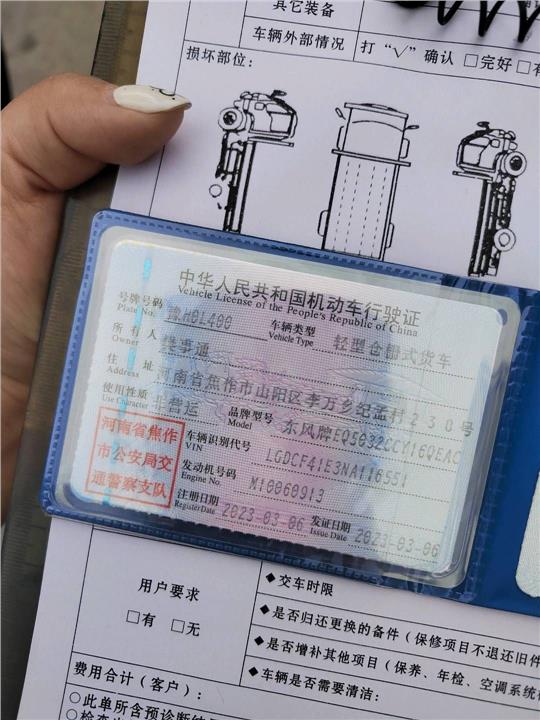 其它装备
车辆外部情况 打“√”确认 □完好 □有
损坏部位：
中华人民共和国机动车行驶证
Vehicle License of the People's Republic of China
号牌号码 豫H0L400 车辆类型 轻型仓栅式货车
Plate No. Vehicle Type
所有人 事通
Owner
住址 河南省焦作市山阳区李万乡纪孟村230号
Address
使用性质 非营运 品牌型号 东风牌EQ5032CCY16QEAC
Use Character Model
河南省焦作
市公安局交
通警察支队
车辆识别代号 LGDCF41E3NA116551
VIN
发动机号码 M10060913
Engine No.
注册日期 2023-03-06 发证日期 2023-03-06
Register Date Issue Date
用户要求
□有 □无
◆交车时限
◆是否归还更换的备件（保修项目不退还旧件
◆是否增补其他项目（保养、年检、空调系统
◆车辆是否需要清洁：
费用合计（客户）：
○此单所含预诊断结